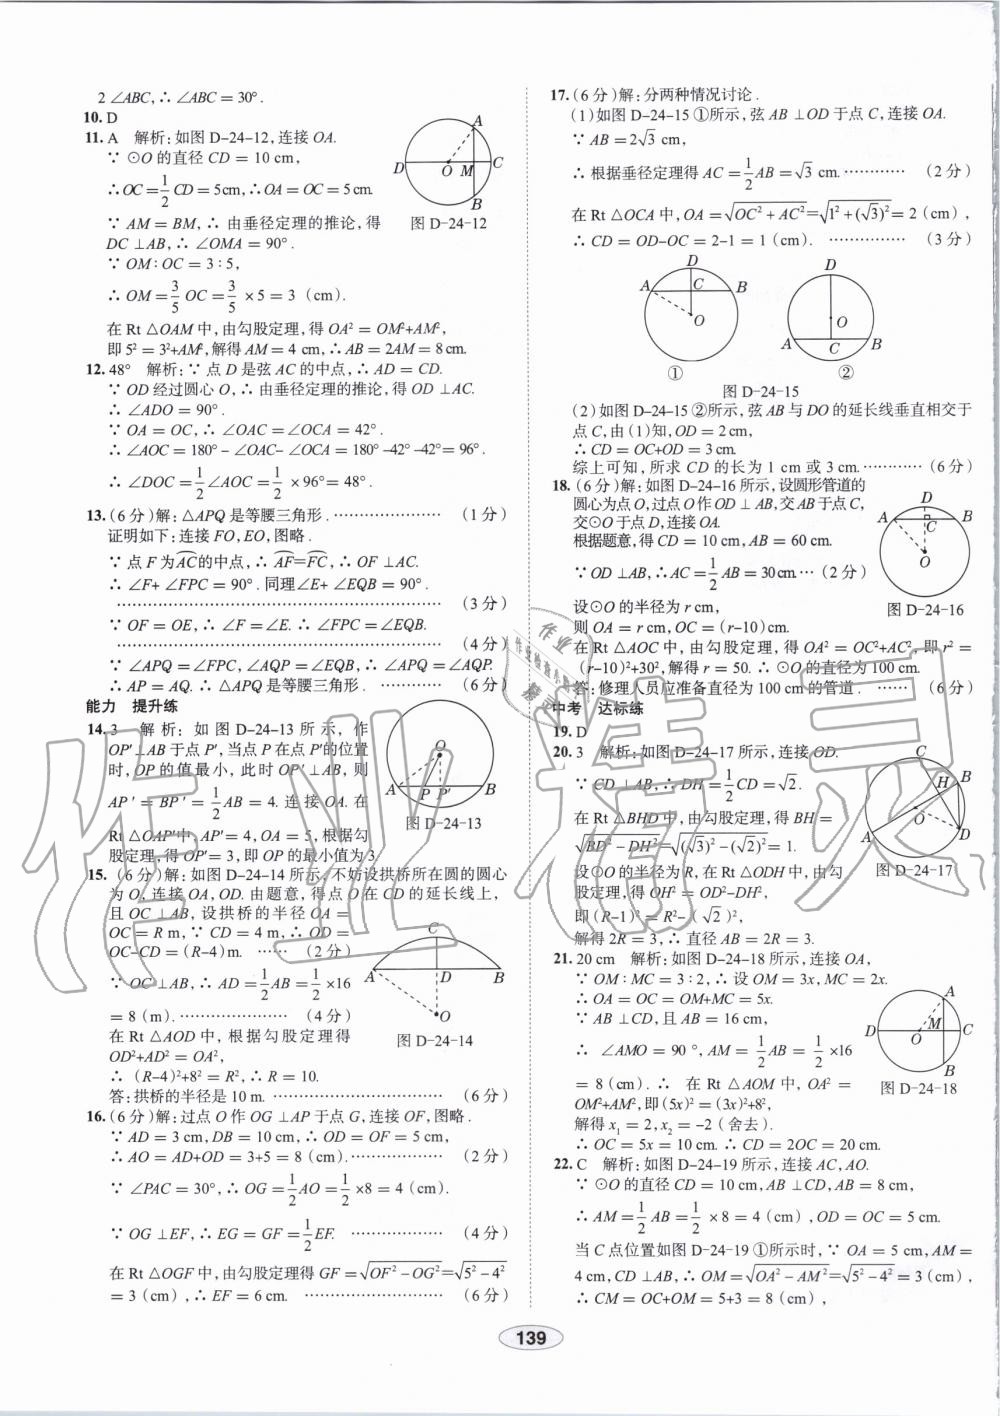 2∠ABC,∴∠ABC=30°.
10. D
11. A 解析:如图 D-24-12,连接 OA.
∵⊙O 的直径 CD=10 cm,
∴OC=1/2CD=5cm,∴OA=OC=5cm.
∵AM=BM,∴由垂径定理的推论,得
DC⊥AB,∴∠OMA=90°.
∵OM∶OC=3∶5,
∴OM=3/5OC=3/5×5=3(cm).
在 Rt△OAM 中,由勾股定理,得 OA²=OM²+AM²,
即 5²=3²+AM²,解得 AM=4 cm,∴AB=2AM=8cm.
A
D O M C
B
图 D-24-12
12. 48° 解析:∵点 D 是弦 AC 的中点,∴AD=CD.
∵OD 经过圆心 O,∴由垂径定理的推论,得 OD⊥AC.
∴∠ADO=90°.
∵OA=OC,∴∠OAC=∠OCA=42°.
∴∠AOC=180°-∠OAC-∠OCA=180°-42°-42°=96°.
∴∠DOC=1/2∠AOC=1/2×96°=48°.
13. (6分)解:△APQ 是等腰三角形. ………………… (1分)
证明如下:连接 FO,EO,图略.
∵点 F 为⌒AC的中点,∴⌒AF=⌒FC,∴OF⊥AC.
∴∠F+∠FPC=90°.同理∠E+∠EQB=90°.
………………………………………………… (3分)
∵OF=OE,∴∠F=∠E.∴∠FPC=∠EQB.
………………………………………………… (4分)
∵∠APQ=∠FPC,∠AQP=∠EQB,∴∠APQ=∠AQP.
∴AP=AQ.∴△APQ 是等腰三角形. ………… (6分)
能力 提升练
14. 3 解析:如图 D-24-13 所示,作
OP′⊥AB 于点 P′,当点 P 在点 P′的位置
时,OP 的值最小,此时 OP′⊥AB,则
AP′=BP′=1/2AB=4.连接 OA.在
Rt△OAP′中,AP′=4,OA=5,根据勾
股定理,得 OP′=3,即 OP 的最小值为 3.
O
A P P′ B
图 D-24-13
15. (6分)解:如图 D-24-14 所示,不妨设拱桥所在圆的圆心
为 O,连接 OA,OD.由题意,得点 O 在 CD 的延长线上,
且 OC⊥AB,设拱桥的半径 OA=
OC=R m,∵CD=4 m,∴OD=
OC-CD=(R-4)m. …… (2分)
∵OC⊥AB,∴AD=1/2AB=1/2×16
=8(m). ………………… (4分)
在 Rt△AOD 中,根据勾股定理得
OD²+AD²=OA²,
∴(R-4)²+8²=R²,∴R=10.
答:拱桥的半径是 10 m. ………………………… (6分)
C
A D B
O
图 D-24-14
16. (6分)解:过点 O 作 OG⊥AP 于点 G,连接 OF,图略.
∵AD=3 cm,DB=10 cm,∴OD=OF=5 cm,
∴AO=AD+OD=3+5=8(cm). ……………… (2分)
∵∠PAC=30°,∴OG=1/2AO=1/2×8=4(cm).
∵OG⊥EF,∴EG=GF=1/2EF. ……………… (4分)
在 Rt△OGF 中,由勾股定理得 GF=√(OF²-OG²)=√(5²-4²)
=3(cm),∴EF=6 cm. ………………………… (6分)
17. (6分)解:分两种情况讨论.
(1)如图 D-24-15①所示,弦 AB⊥OD 于点 C,连接 OA.
∵AB=2√3 cm,
∴根据垂径定理得 AC=1/2AB=√3 cm. ………… (2分)
在 Rt△OCA 中,OA=√(OC²+AC²)=√(1²+(√3)²)=2(cm),
∴CD=OD-OC=2-1=1(cm). …………… (3分)
D
A C B
O
①
D
O
A C B
②
图 D-24-15
(2)如图 D-24-15②所示,弦 AB 与 DO 的延长线垂直相交于
点 C,由(1)知,OD=2cm,
∴CD=OC+OD=3cm.
综上可知,所求 CD 的长为 1 cm 或 3 cm. ………… (6分)
18. (6分)解:如图 D-24-16 所示,设圆形管道的
圆心为点 O,过点 O 作 OD⊥AB,交 AB 于点 C,
交⊙O 于点 D,连接 OA.
根据题意,得 CD=10 cm,AB=60 cm.
∵OD⊥AB,∴AC=1/2AB=30cm. … (2分)
设⊙O 的半径为 r cm,
则 OA=r cm,OC=(r-10)cm.
在 Rt△AOC 中,由勾股定理,得 OA²=OC²+AC²,即 r²=
(r-10)²+30²,解得 r=50.∴⊙O 的直径为 100 cm.
答:修理人员应准备直径为 100 cm 的管道. …… (6分)
D
A C B
O
图 D-24-16
中考 达标练
19. D
20. 3 解析:如图 D-24-17 所示,连接 OD.
∵CD⊥AB,∴DH=1/2CD=√2.
在 Rt△BHD 中,由勾股定理,得 BH=
√(BD²-DH²)=√((√3)²-(√2)²)=1.
设⊙O 的半径为 R,在 Rt△ODH 中,由勾
股定理,得 OH²=OD²-DH²,
即(R-1)²=R²-(√2)²,
解得 2R=3,∴直径 AB=2R=3.
C
H B
O
A D
图 D-24-17
21. 20 cm 解析:如图 D-24-18 所示,连接 OA,
∵OM∶MC=3∶2,∴设 OM=3x,MC=2x.
∴OA=OC=OM+MC=5x.
∵AB⊥CD,且 AB=16 cm,
∴∠AMO=90°,AM=1/2AB=1/2×16
=8(cm).∴在 Rt△AOM 中,OA²=
OM²+AM²,即(5x)²=(3x)²+8²,
解得 x₁=2,x₂=-2(舍去).
∴OC=5x=10 cm.∴CD=2OC=20 cm.
A
D O M C
B
图 D-24-18
22. C 解析:如图 D-24-19 所示,连接 AC,AO.
∵⊙O 的直径 CD=10 cm,AB⊥CD,AB=8 cm,
∴AM=1/2AB=1/2×8=4(cm),OD=OC=5 cm.
当 C 点位置如图 D-24-19①所示时,∵OA=5 cm,AM=
4 cm,CD⊥AB,∴OM=√(OA²-AM²)=√(5²-4²)=3(cm),
∴CM=OC+OM=5+3=8(cm),
139
作业精灵